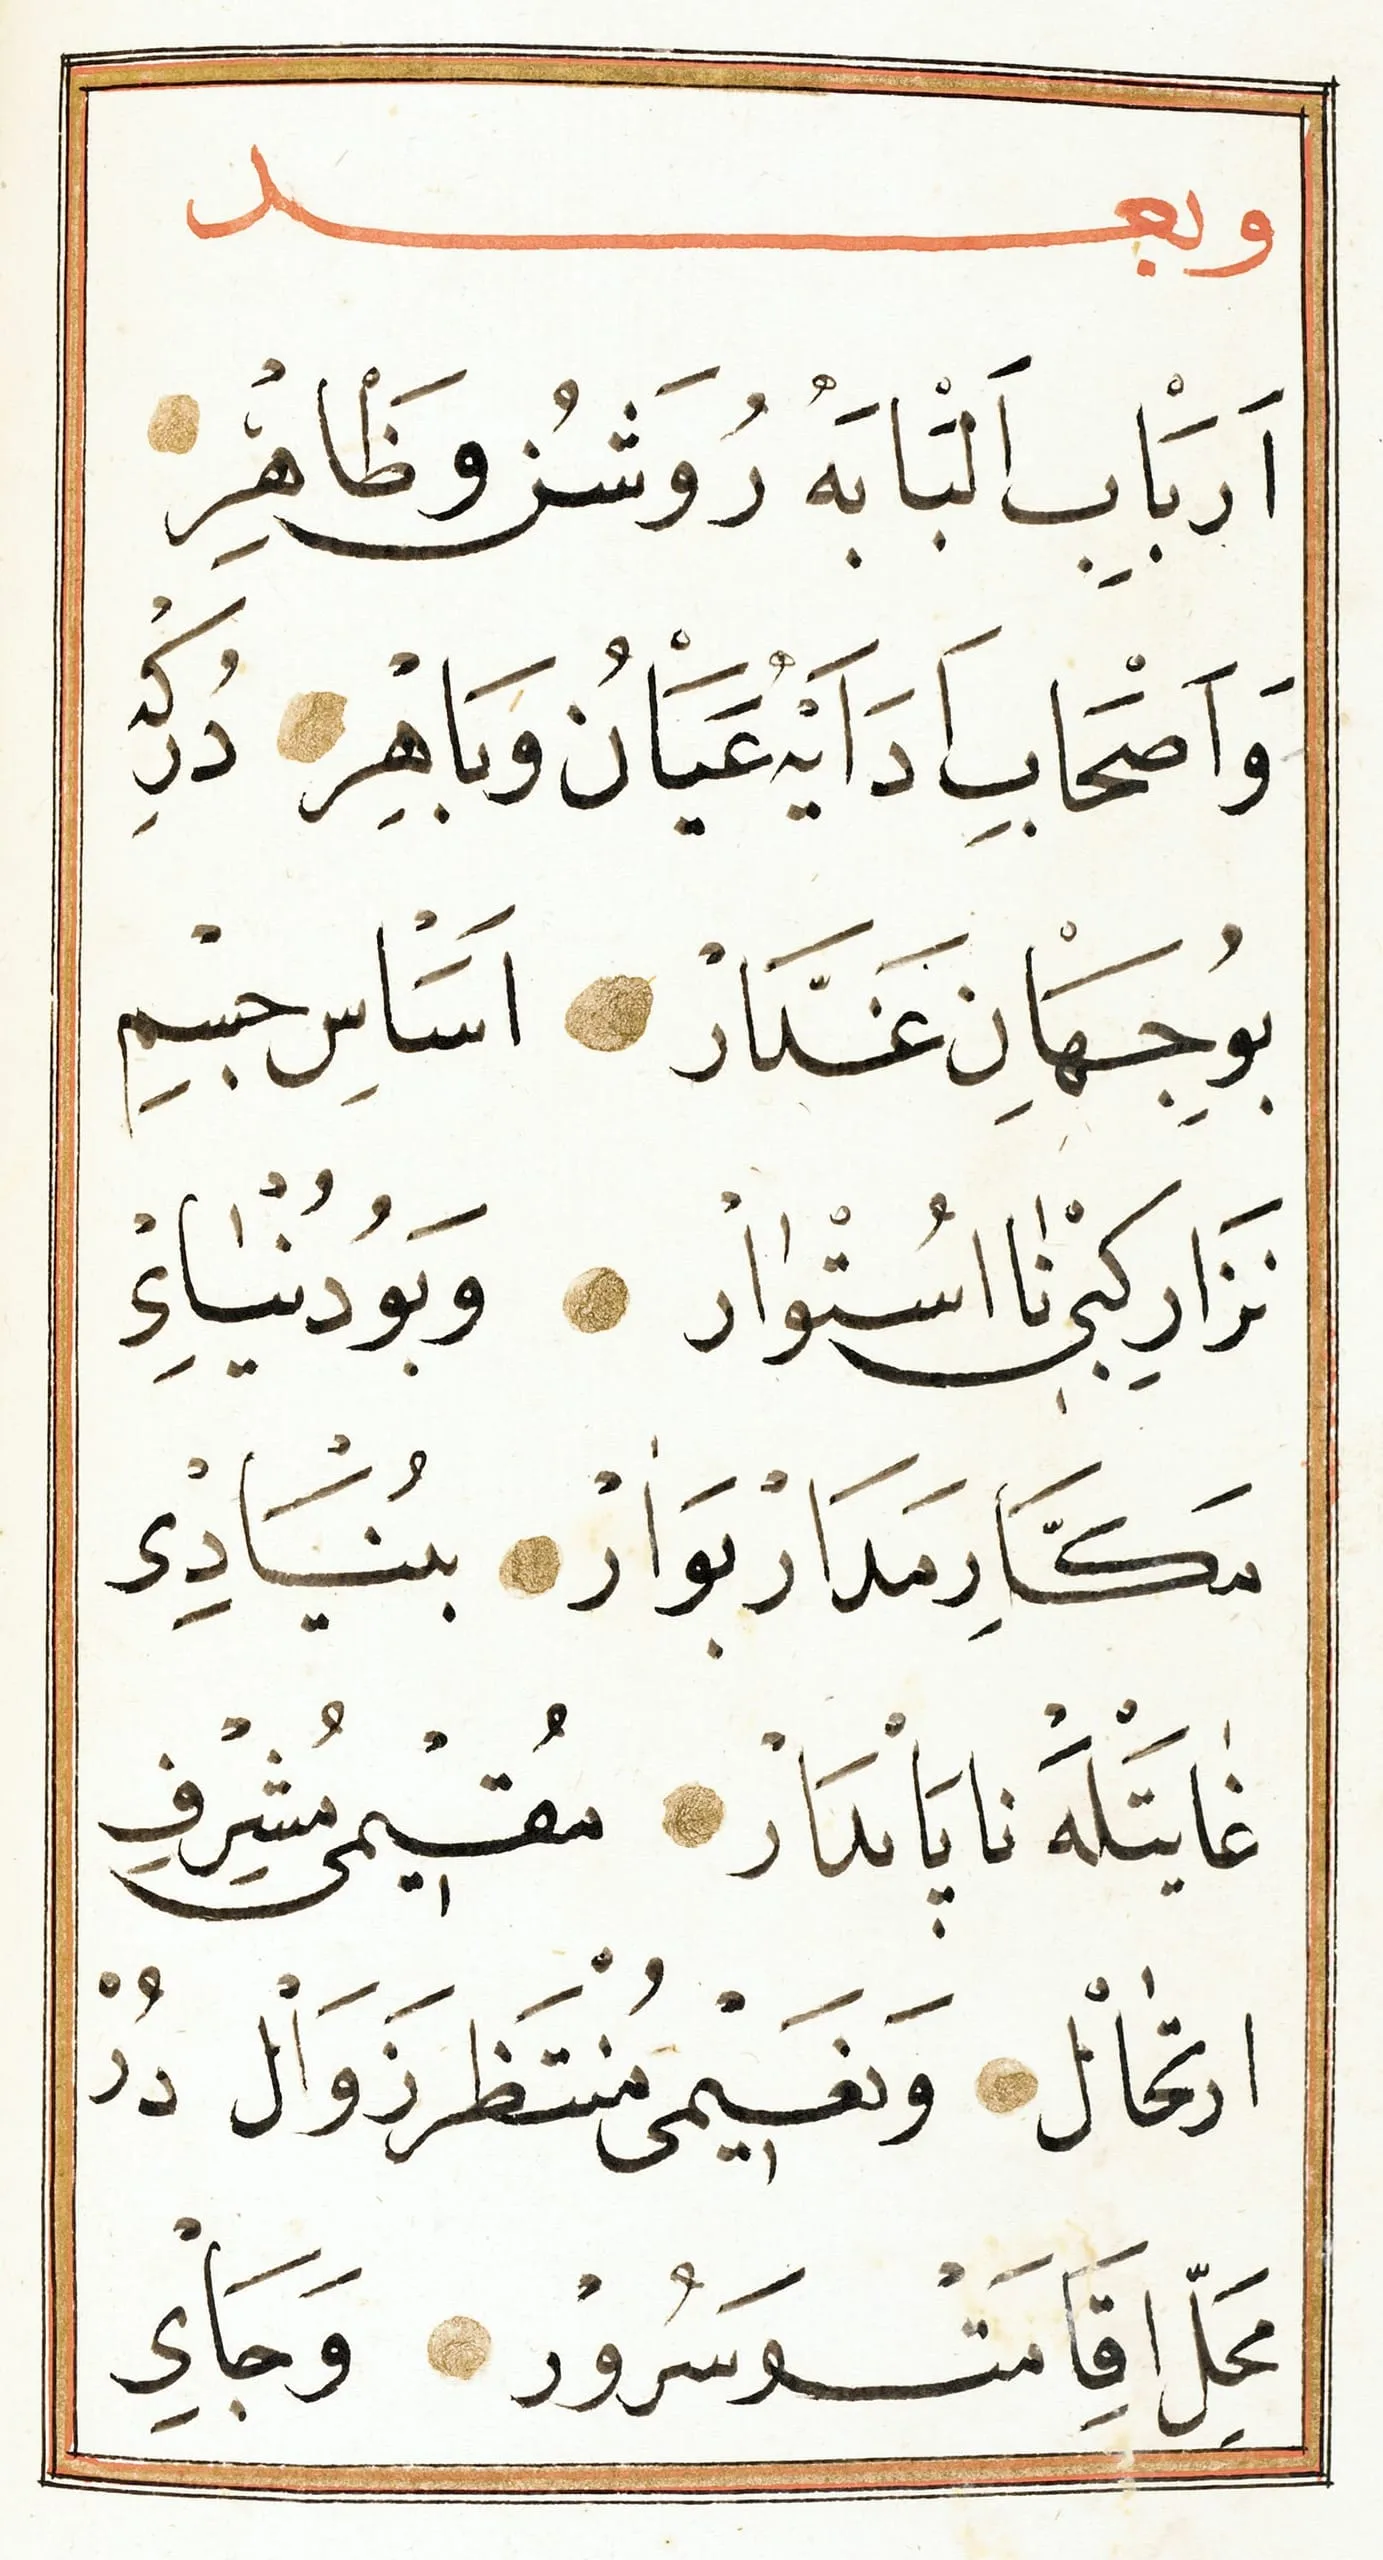 وبعد
اَرْبَابِ اَلْبَابَهْ رُوشَنْ وَظَاهِرْ
وَاَصْحَابِ اَدَابَهْ عَيَانُ وبَاهِرْ دُركِهْ
بُوجِهَانِ غَدَّارْ اَسَاسِ جِسْمِ
نَزَارِ كَبِى نَا اُسْتُوَارْ وَبُو دُنْيَاءِ
مَكَّارِ مَدَارْ بَوَارْ بُنْيَادِى
غَايَتْلَهْ نَاپَايدَارْ مُقِيمِى مُشْرِفِ
ارتحَالْ وَنَعِيمِى مُنْتَظِرِ زَوَالْ دُرْ
مَحَلِّ اقَامَتْ وَسُرُورْ وَجَاىِ